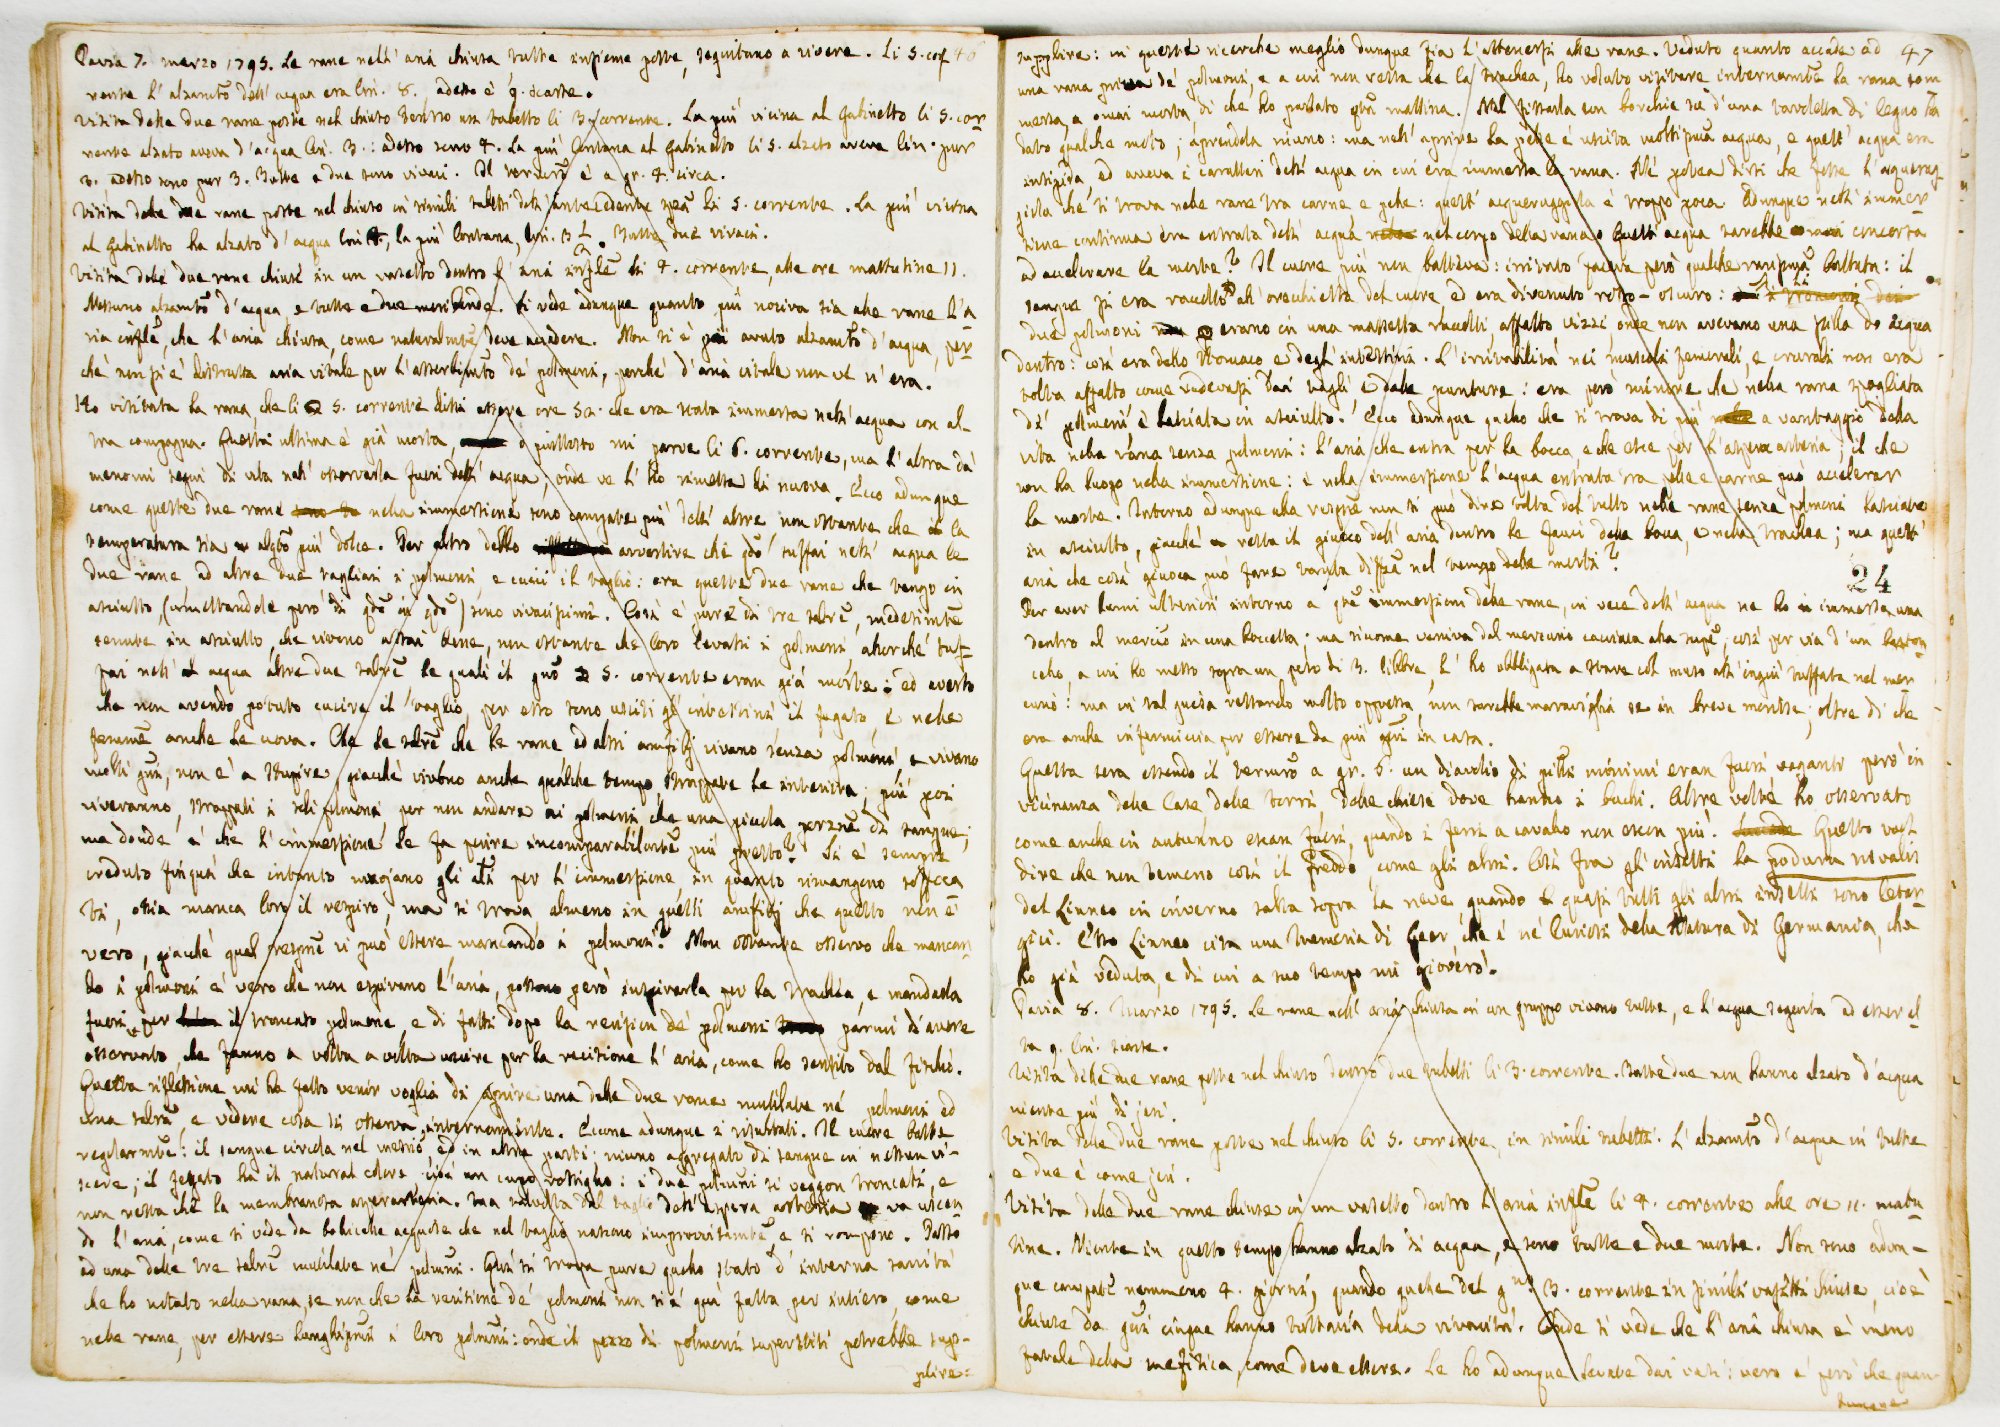 46
Pavia 7. marzo 1795. Le rane nell' aria chiusa tutte insieme poste, seguitano a vivere. Li 5. cor
rente l' alzamto dell' acqua era lin. 8. adesso è 9. scarse.
Visita delle due rane poste nel chiuso dentro un tubetto li 3. corrente. La più vicina al Gabinetto li 5. cor
rente alzato aveva d'acqua lin. 3.: adesso sono 4. La più lontana al Gabinetto li 5. alzato aveva lin. pur
3. adesso sono pur 3. Tutte e due sono vivaci. Il termro è a gr. 4. circa.
Visita delle due rane poste nel chiuso in simili tubetti dell' antecedente li 5. corrente. La più vicina
al Gabinetto ha alzato d'acqua lin. 4., la più lontana, lin. 3 1/2. Tutte due vivaci.
Visita delle due rane chiuse in un vasetto dentro l' aria li 4. corrente, alle ore mattutine 11.
Nessuno alzamto d'acqua, e tutte e due moribonde. Si vede adunque quanto più nociva sia alle rane l'a
ria, che l' aria chiusa, come naturalmte deve accadere. Non si è più avuto alzamto d'acqua, per
chè non si è distrutta aria vitale per l'assorbimto de' polmoni, perchè d'aria vitale non ve n'era.
Ho visitata la rana che li 5. corrente era stata immersa nell' acqua con al-
tra compagna. Questa ultima è già morta, piuttosto mi parve li 6. corrente, ma l'altra dà
menomi segni di vita nell' osservarla fuori dell' acqua, onde ve l' ho rimessa di nuova. Ecco adunque
come queste due rane nella immersione sono campate più dell' altre non ostante che la
temperatura sia più dolce. Per altro debbo avvertire che tuffai nell' acqua le
due rane ad altre due tagliati i polmoni, e cucii il taglio: ora queste due rane che tengo in
asciutto, (umettandole però di) sono vivacissime. Così è pure di tre, medesimte
tenute in asciutto, che vivono assai bene, non ostante che loro levati i polmoni, allorché tuf-
fai nell' acqua altre due le quali il 5. corrente eran già morte: ed avverto
che non avendo potuto cucire il taglio, per esso sono usciti gl' intestini il fegato, e nelle
femmine anche le uova. Che le che le rane ed altri anfibj vivano senza polmoni e vivano
molti, non è a stupire giacchè vivono anche qualche tempo strappate le interiora; più poi
viveranno, strappati i soli polmoni per non andare ai polmoni che una piccola porzne di sangue;
ma donde è che l' immersione le fa perire incomparabilmte più presto? Si è sempre
creduto finquì che intanto muojano gli per l' immersione, in quanto rimangono soffoca
ti, ossia manca loro il respiro, ma si trova almeno in questi anfibj che questo non è
vero, giacchè qual respirne vi può essere mancando i polmoni? Non ostante osservo che mancan
do i polmoni è vero che non espirano l'aria, possono però inspirarla per la trachea, e mandarla
fuori per il troncato polmone, e di fatti dopo la recision de' polmoni parmi d'avere
osservato, che fanno a volta a volta uscire per la recisione l' aria, come ho sentito dal fischio.
Questa riflessione mi ha fatto venir voglia di aprire una delle due rane mutilate ne' polmoni ed
una, e vedere cosa si osserva internamente. Eccone adunque i risultati. Il cuore batte
regolarmte: il sangue circola nel, ed in altre parti: niuno aggregato di sangue in nessun vi-
scere; il fegato ha il natural colore, cioè un cupo rossigno: i due polmoni si veggon troncati, e
non resta che la membranosa asperarteria. dal taglio dell' aspera arteria va uscen
do l'aria, come si vede da bollicelle acquose che nel taglio nascono improvvisamte e si rompono. Passo
ad una delle tre mutilate ne' polmoni. Qui si trova pure quello stato d' interna sanità
che ho notato nella rana, se non che la recisione de' polmoni non si è quì fatta per intiero, come
nelle rane, per essere lunghissimi i loro polmoni: onde il pezzo di polmoni superstiti potrebbe sup-
plire:
47
supplire: in queste ricerche meglio dunque fia l'attenersi alle rane. Veduto quanto accade ad
una rana priva de' polmoni, e a cui non resta che la trachea, ho voluto visitare internamte la rana som
mersa, e omai morta, di che ho parlato mattina. Nel fissarla con borchie su d'una tavoletta di legno ha
dato qualche moto; aprendola niuno: ma nell' aprire la pelle è uscita moltissima acqua, e quest' acqua era
insipida, ed aveva i caratteri dell' acqua in cui era immersa la rana. Nè potea dirsi che fosse l' acquerug
giola che si trova nelle rane tra carne, e pelle: quest' acqueruggiola è troppo poca. Adunque nell' immer
sione continua era entrata dell' acqua nel corpo della rana. Quest' acqua sarebbe concorsa
ad accelerare la morte? Il cuore più non batteva: irritato faceva però qualche battuta: il
sangue si era raccolto all' orecchietta del cuore ed era divenuto rosso-oscuro:
due polmoni erano in una massetta raccolti affatto vizzi onde non avevano una stilla di acqua
dentro: così era dello stomaco e degl' intestini. L'irritabilità nei muscoli femorali, e crurali non era
tolta affatto come vedevasi dai tagli e dalle punture: era però minore che nella rana spogliata
di' polmoni e lasciata in asciutto. Ecco adunque quello che si trova di più a vantaggio della
vita nella rana senza polmoni: l'aria che entra per la bocca, e che esce per l' aspera arteria; il che
non ha luogo nella immersione: e nella immersione l'acqua entrata tra pelle e carne può accelerar
la morte. Intorno adunque alla respirne non si può dire tolta del tutto nelle rane senza polmoni lasciate
in asciutto, giacchè resta il giuoco dell' aria dentro le fauci della bocca, e nella trachea; ma quest'
aria che così giuoca può fare tanta diffza nel tempo delle morti?
24
Per aver lumi ulteriori intorno a immersioni delle rane, in vece dell' acqua ne ho immersa una
dentro al mercurio in una boccetta; ma siccome veniva dal mercurio cacciata alla superfe, così per via d'un baston
cello, a cui ho messo sopra un peso di 3. libbre, l' ho obbligata a stare col muso all' ingiù tuffata nel mer
curio: ma in tal guisa restando molto oppressa, non sarebbe maraviglia se in breve morisse; oltre di che
era anche infermiccia per essere da più giorni in casa.
Questa sera essendo il termro a gr. 6. un diavolio di minimi eran fuori vaganti però in
vicinanza delle Case delle torri, delle chiese dove hanno i buchi. Altre volte ho osservato
come anche in autunno escan fuori, quando i ferri a cavallo non escon più. Questo vuol
dire che non temono così il freddo, come gli altri. Così fra gl' insetti la podura nivalis
del Linneo in inverno salta sopra la neve quando quasi tutti gli altri insetti sono letar
gici. Esso Linneo cita una Memoria di Geer, che è ne' Curiosi della Natura di Germania, che
ho già veduta, e di cui a suo tempo mi gioverò.
Pavia 8. Marzo 1795. Le rane nell' aria chiusa in un gruppo vivono tutte, e l' acqua seguita ad esser al
ta 9. lin. scarse.
Visita delle due rane poste nel chiuso dentro due tubetti li 3. corrente. Tutte due non hanno alzato d'acqua
niente più di jeri.
Visita delle due rane poste nel chiuso li 5. corrente, in simili tubetti. L'alzamto d'acqua in tutte
e due è come jeri.
Visita delle due rane chiuse in un vasetto dentro l'aria li 4. corrente alle ore 11. matu
tine. Niente in questo tempo hanno alzato di acqua, e sono tutte e due morte. Non sono adun-
que campate nemmeno 4. giorni, quando quelle del gno 3. corrente in simili vasetti chiuse, cioè
chiuse da giorni cinque hanno tuttavia della vivacità. Onde si vede che l' aria chiusa è meno
fatale della mefitica, come deve essere. Le ho adunque levate dai vasi: vero è però che quan
tunque